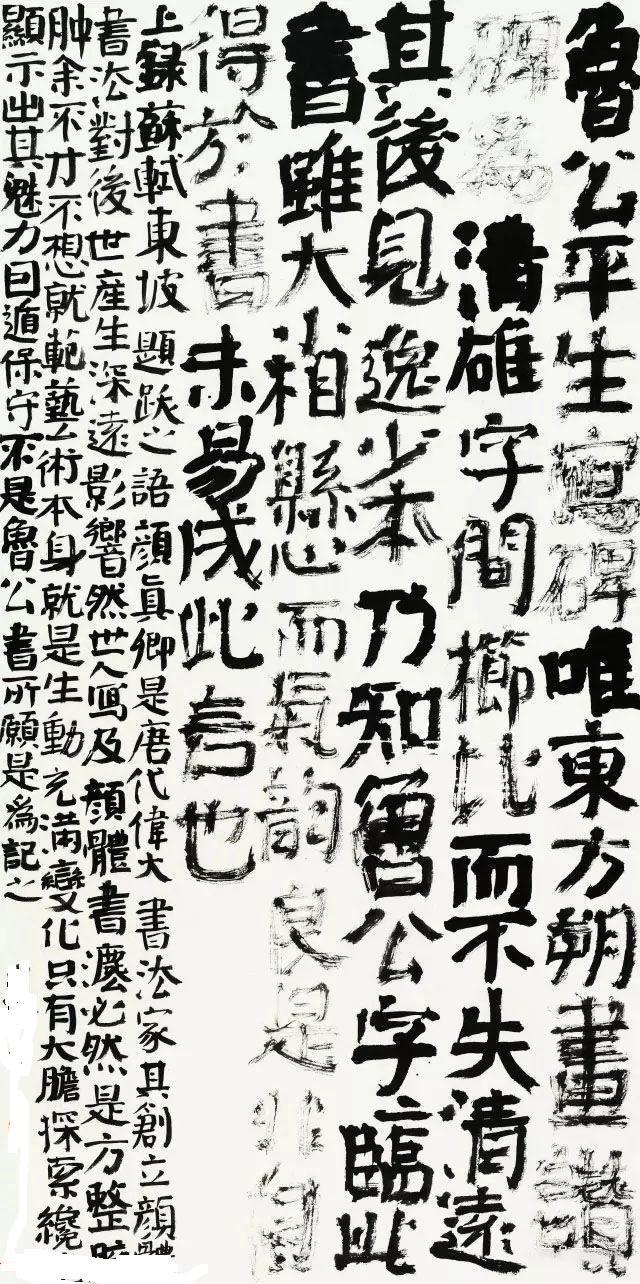 魯公平生寫碑唯東方朔畫讚
碑為清雄字間櫛比而不失清遠
其後見逸少本乃知魯公字二臨此
書雖大小相懸而氣韵良是非自
得於書未易成此言也
上録蘇軾東坡題跋之語顔真卿是唐代偉大書法家其創立顔體
書法對後世産生深遠影響然世人寫及顔體書灋必然是方整
肿余不才不想就範藝術本身就是生動充滿變化只有大膽探索纔
顯示出其魅力曰遁保守不是魯公書所願是爲記之